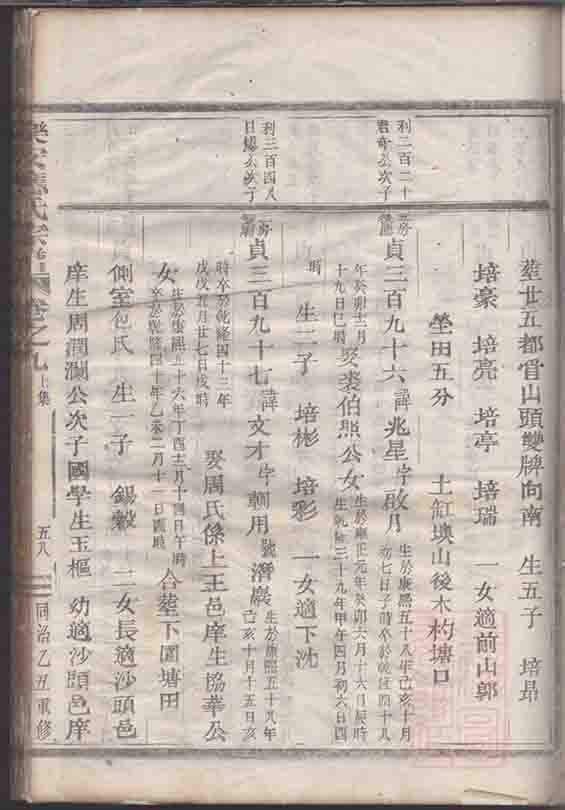 葬廿五都管山頭雙牌向南 生五子 培昂
培豪 培亮 培亭 培瑞 一女適前山郭
塋田五分 土缸墺山後木杓塘口
利二百二十
君奇公次子
貞三百九十六諱兆星字啟月
生於康熙五十八年己亥十月
初七日子時卒於乾隆四十八
年癸卯十二月
十九日巳時
娶裘伯熊公女
生於雍正元年癸卯六月十六日辰時
卒於乾隆三十九年甲午四月初六日酉
時 生二子 培彬 培彩 一女適下沈
利三百四八
次子
貞三百九十七諱文才字翱用號濟巖
生於康熙五十八年
己亥十月十五日亥
時卒於乾隆四十三年
戊戌九月廿七日戌時
娶周氏係上王邑庠生協華公
女
生於康熙五十六年丁酉十二月十四日午時
卒於乾隆四十年乙未二月十一日酉時
合葬下圖塘田
側室包氏 生一子 錫穀 二女長適沙頭邑
庠生周潤瀾公次子國學生玉樞 幼適沙頭邑庠
氏宗譜 卷之九 上集 五八 同治乙丑重修